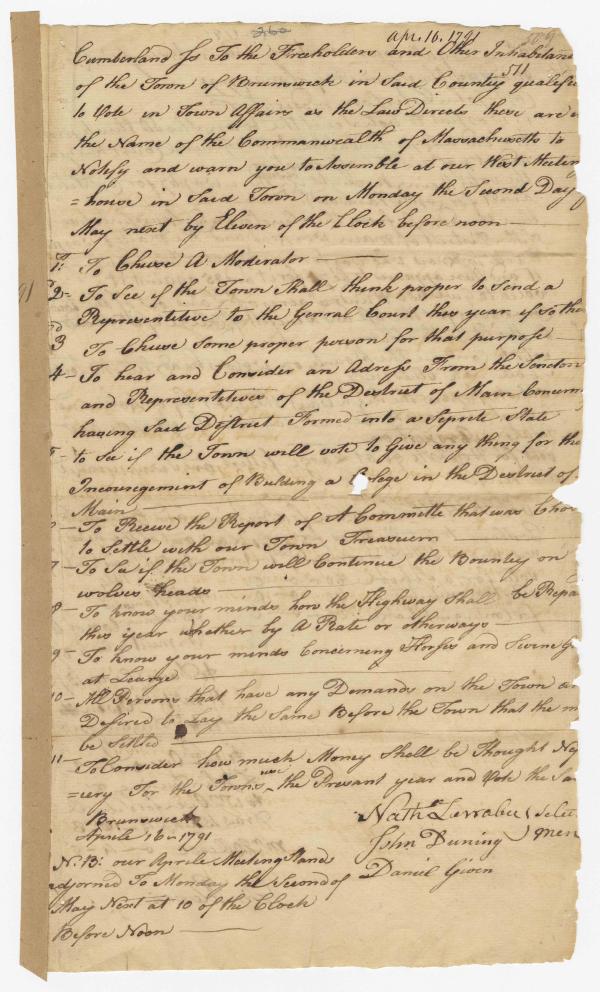 260
Apr. 16. 1791
Cumberland Ss To the Freeholders and Other Inhabitan
511
of the Town of Brunswick in Said County qualifie
to Vote in Town Affairs as the Law Directs these are
the Name of the Commanwealth of Massachusetts to
Notify and warn you to Assemble at our West Meetin
=house in Said Town on Monday the Second Day
May next by Eleven of the Clock before noon
1: To Chuse A Moderator
2- To See if the Town Shall think proper to Send a
Representitive to the Genral Court this year if so the
3 To Chuse Some proper person for that purpose
4- To hear and Consider an Adress From the Senetors
and Representitives of the Destrict of Main Concern
having Said Destrict Formed into a Seprete State
5- to See if the Town will vote to Give any thing for the
Incouregement of Bulding a Colege in the Destrict of
Main
To Receve the Report of A Committe that was Cho
to Settle with our Town Treasurem
7- To See if the Town will Continue the Bountey on
wolves heads
8- To know your minds how the Highway Shall be Repa
this year whather by A Rate or otherways
9- To know your minds Concerning Horses and Swine G
at Learge
10- All Persons that have any Demands on the Town ar
Desired to Lay the Same Before the Town that the m
be Setled
11- To Consider how much Money Shall be Thought Ne
=cery For the Towns use the Presant year and Vote the Sa
Brunswick
Aprile 16- 1791
Nathll Larrabee Selec
John Duning men
Daniel Given
N. B: our Aprile Meeting Stand
adjorned To Monday the Second of
May Next at 10 of the Clock
Before Noon